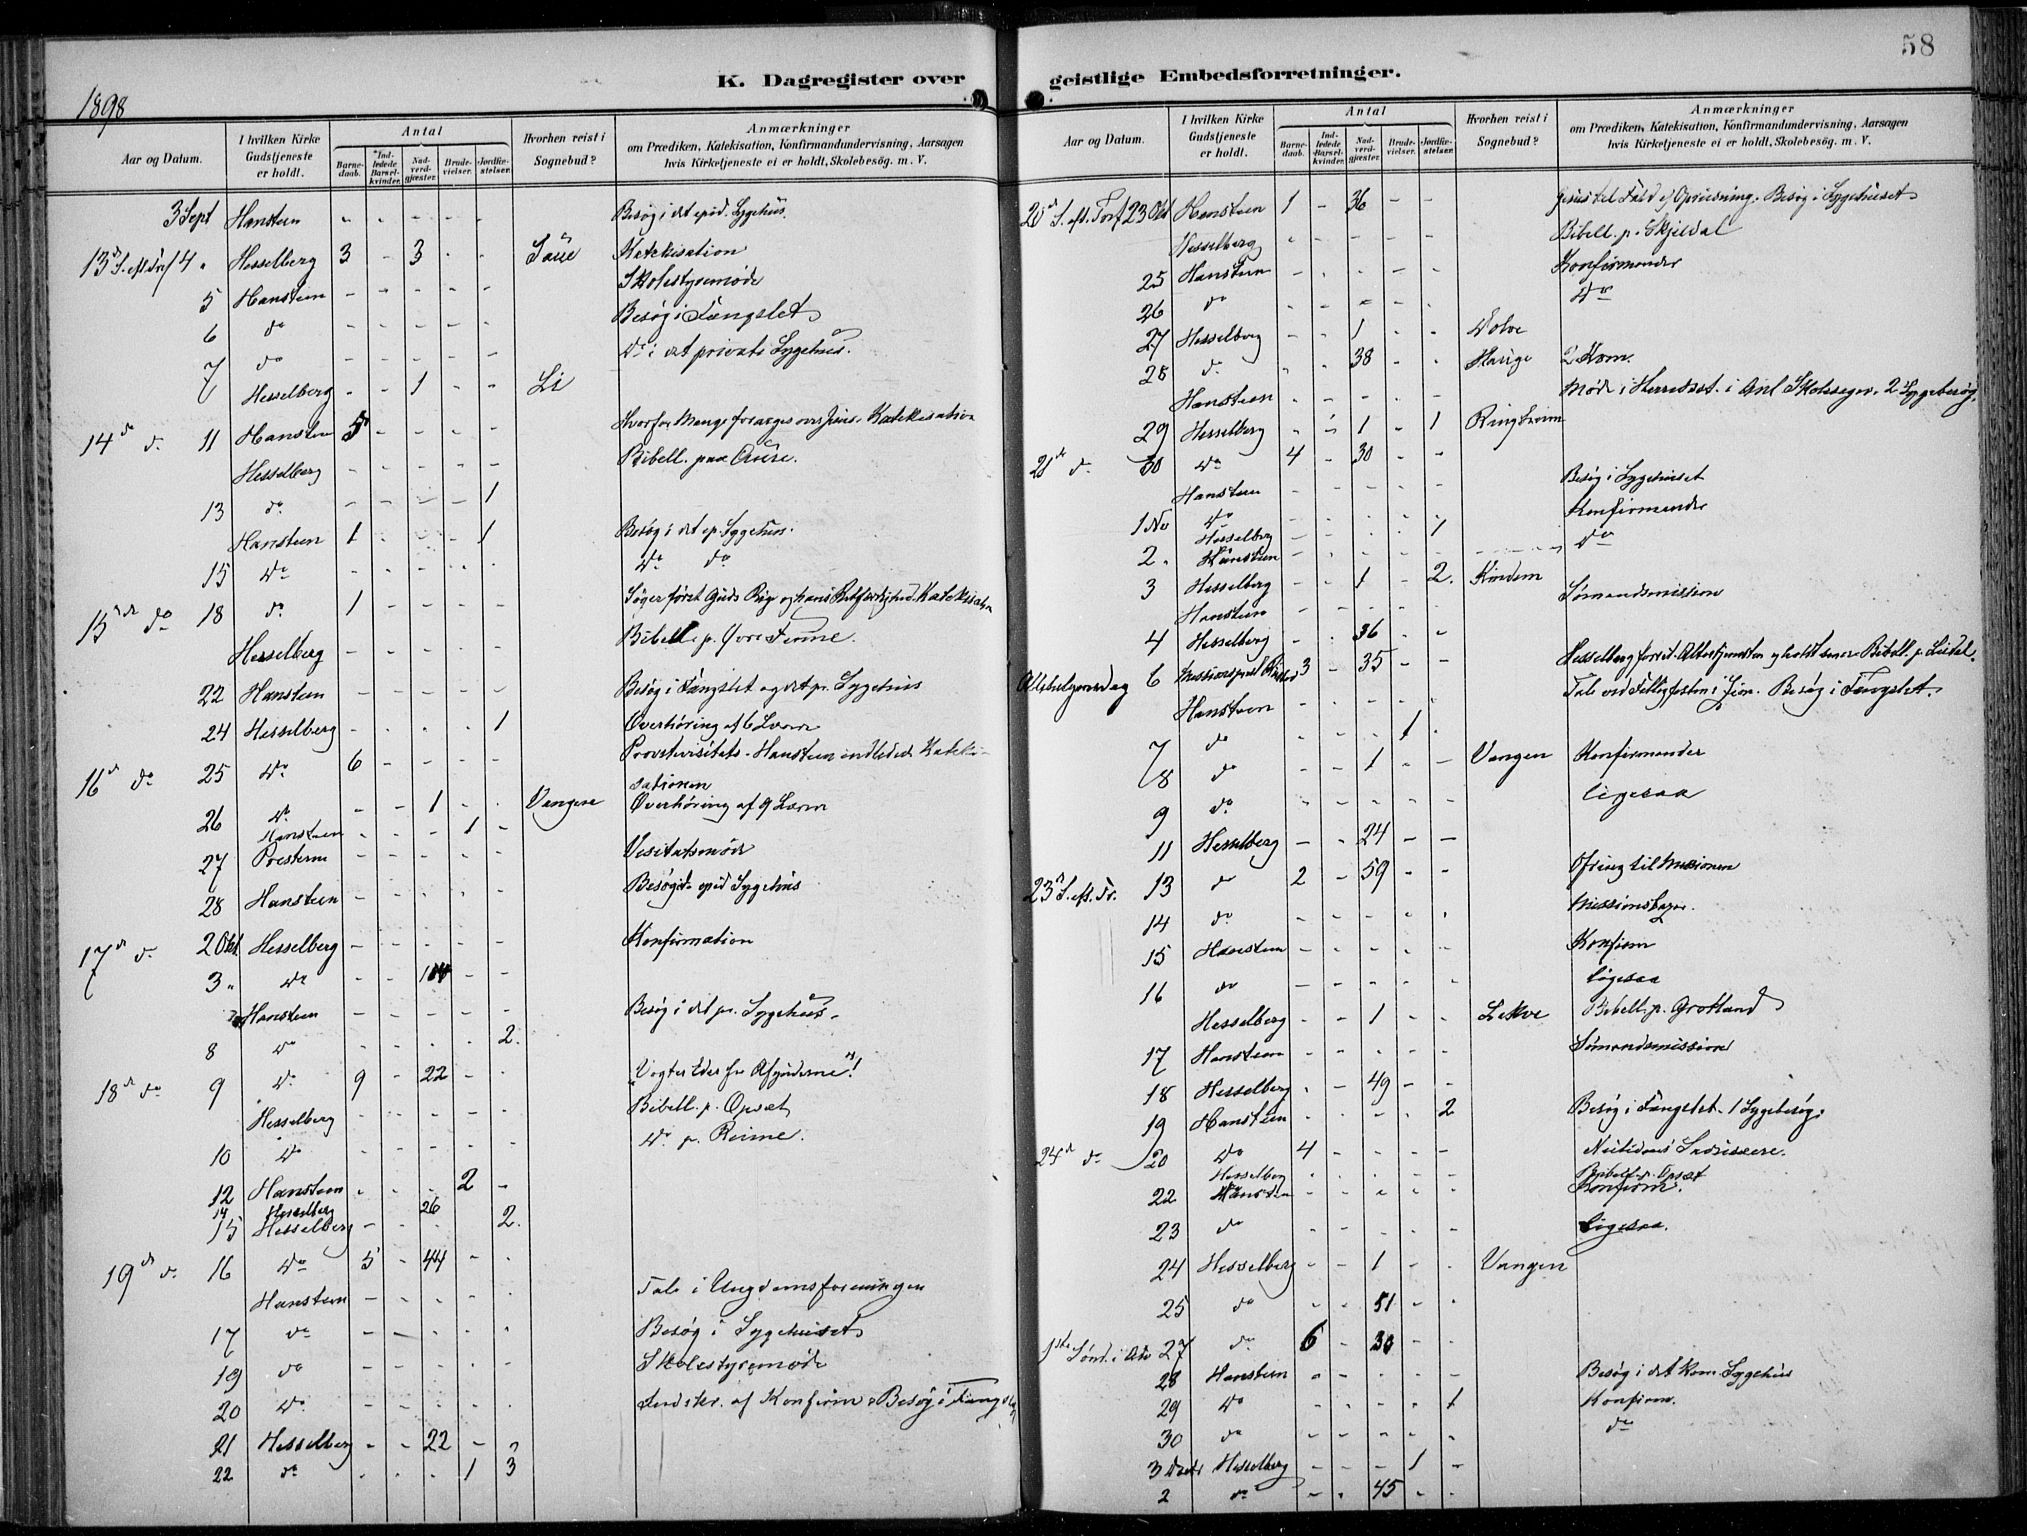 58
K. Dagregister over geistlige Embedsforretninger.
1898
Aar og Datum. I hvilken Kirke Gudstjeneste er holdt. Antal Barnedaab. Indledede Barselkvinder. Nadverdgjæster. Brudevielser. Jordfæstelser. Hvorhen reist i Sognebud? Anmærkninger om Prædiken, Katekisation, Konfirmandundervisning, Aarsagen hvis Kirketjeneste ei er holdt, Skolebesøg. m. V.
3 Sept Hansteen - - - - - Besøg i det epid. Sygehus.
13d S. eft. Tref 4 " Hesselberg 3 - 3 - - Katekisation
5 Hansteen - - - - - Skolestyremøde
6 do - - - - - Besøg i Fængslet
7 do - - - - - Do i det private Sygehus.
Hesselberg - - 1 - - Li
14de do 11 Hansteen 5 - - - - Hvorfor Mange forarges over Jesus. Katekisation
Hesselberg - - - - - Bibell. paa
13 do - - - - 1
Hansteen 1 - - - 1 Besøg i det ep. Sygehus.
15 Do - - - - - Do do
15de do 18 do 1 - - - - Søger først Guds Rige og hans Retfærdighed. Katekisation
Hesselberg - - - - - Bibell. p.
22 Hansteen - - - - - Besøg i Fængslet og det pr. Sygehus
24 Hesselberg - - - - 1 Overhøring af 6 Lærer
16d do 25 Do 6 - - - - Provstevisitats - Hansteen indledede Kateki-
sationen
26 Do - - 1 - - Vangen Overhøring af 9 Lærer
Hansteen - - - 1 -
27 Presterne - - - - - Visitatsmøde
28 Hansteen - - - - - Besøg i det epid Sygehus
17d do 2 Okt. Hesselberg - - - - - Konfirmation
3 " Do - - 104 - -
Hansteen - - - - - Besøg i det pr. Sygehus.
8 Do - - - - 2.
18de do 9 Do 9 - 22 - - "Vogter Eder for Afguderne"!
Hesselberg - - - - - Bibell. p. Opsæt
10 Do - - - - - Do p. Reime.
12 Hansteen - - - 2 -
14 Hesselberg 26
15 Hesselberg - - - - 2.
19de do 16 Do 5 - 44 - -
Hansteen - - - - - Tale i Ungdomsforeningen
17 do - - - - - Besøg i Sygehuset
19 do - - - - - Skolestyremøde
20 Do - - - - - af Konfirm. Besøg i Fængslet
21 Hesselberg - - 22 - -
22 do - - - 1 3
Aar og Datum. I hvilken Kirke Gudstjeneste er holdt. Antal Barnedaab. Indledede Barselkvinder. Nadverdgjæster. Brudevielser. Jordfæstelser. Hvorhen reist i Sognebud? Anmærkninger om Prædiken, Katekisation, Konfirmandundervisning, Aarsagen hvis Kirketjeneste ei er holdt, Skolebesøg. m. V.
20d S. eft. Tref 23 Okt Hansteen 1 - 36 - - Jesus til Fald og Opreisning. Besøg i Sygehuset
Hesselberg - - - - - Bibell. p. Skjeldal
25 Hansteen - - - - - Konfirmander
26 do - - - - - Do
27 Hesselberg - - 1 - -
28 do - - 38 - - 2 Kom.
Hansteen - - - - - Møde i Herredsst. i Anl. Skolesager. 2 Sygebesøg.
29 Hesselberg - - 1 - 1 Ringheim
21de do 30 Do 4 - 30 - -
Hansteen - - - - - Besøg i Sygehuset
1 Nov Do - - - - - Konfirmander
Hesselberg - - - - 1
2. Hansteen - - - - - Do
3 Hesselberg - - 1 - 2. Kindem
Hansteen - - - - - Sømandsmission
4 Hesselberg - - 36 - -
Allehelgensdag 6 3 - 35 - - Hesselberg forret. Altertjenesten og holdt senere Bibell. p.
Hansteen - - - - - Tale ved Besøg i Fængslet.
7 do - - - 1 -
8 do - - 1 - - Vangen Konfirmander
9 do - - - - - ligesaa
11 Hesselberg - - 24 - -
23d S. eft. Tr. 13 do 2 - 59 - - Ofring til Missionen
14 do - - - - -
15 Hansteen - - - - - Konfirm
16 do - - - - - ligesaa
Hesselberg - - 1 - - Lekve Bibell. p. Grotland
17 Hansteen - - - - - Sømandsmission
18 Hesselberg - - 49 - -
19 Hansteen - - - - 2 Besøg i Fængslet. 1 Sygebesøg.
24d do 20 Do 4 - - - -
Hesselberg - - - - - Bibell. p. Opsæt
22 Hansteen - - - - - Konfirm.
23 do - - - - - ligesaa.
24 Hesselberg - - 1 - - Vangen
25 do - - 51 - -
1ste Sønd. i Adv 27 do 6 - 30 - -
28 Hansteen - - - - - Besøg i det kom. Sygehus
29 Do - - - - 1 Konfirm.
30 do - - - - - do
3 Decbr Hesselberg - - - 1 -
2 do - - 45 - -